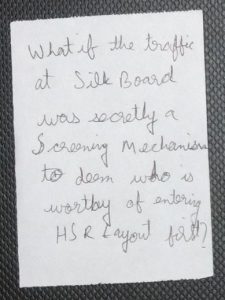 What if the traffic
at Silk Board
was secretly a
Screening Mechanism
to deem who is
worthy of entering
HSR Layout first?